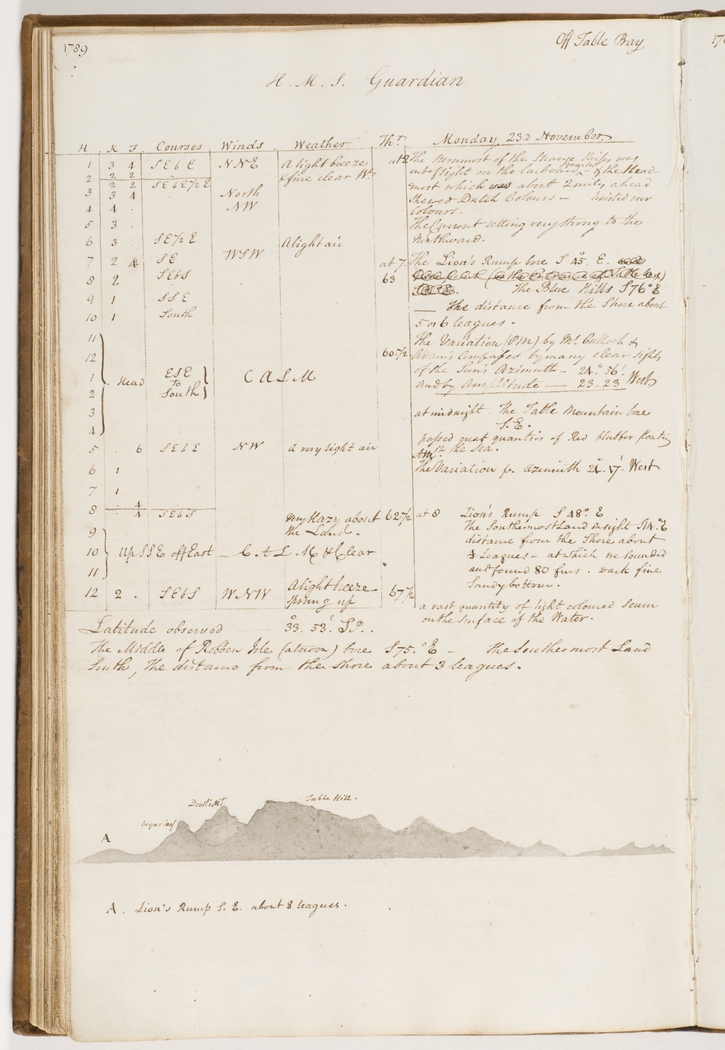 1789
Off Table Bay
H.M.S. Guardian
H K F Courses Winds Weather Thr. Monday, 23d November.
1 3 4 SEbE NNE A light breeze at 2 The sternmost of the strange ships was
2 2 2 & fine clear Wr. out of sight on the Larboard of the Head-
2 2 SEbE½E most which was about 2 miles ahead
3 3 4 North shewed Dutch Colours — hoisted our
4 4 . NW Colours.
5 3 . The Current setting very strong to the
6 3 . SE½E A light air Northward.
7 2 4 SE WSW at 7 The Lion's Rump bore S 45° E.
8 2 SEbS 63 The Blue Hills S 76° E
9 1 SSE — The distance from the Shore about
10 1 South 5 or 6 leagues.
11 The Variation (PM) by Mc. Culloch &
12 60½ Adams Compasses by many clear sights
1 Head ESE CALM of the Sun's Azimuth — 24.° 56'.
2 to South and by Amplitude — 23. 23 West
3 at midnight. The Table Mountain bore
4 S.E.
passed great quantities of Red blubber floating
5 . 6 SEbE NW A very light air the Sea.
6 1 The Variation p. Azimuth West
7 1
8 4
4 SEbS Very Hazy about 62½ at 8 Lion's Rump S 48° E
9 the Land. The Southermost Land in sight
distance from the Shore about
10 up SSE off East CALM & Clear leagues — at which we sounded
11 and found 80 fms. dark fine
12 2 . SEbS WNW A light breeze 67½ Sandy bottom.
sprung up a vast quantity of light coloured Scum
on the Surface of the Water.
Latitude observed — 33.° 53'. So..
The Middle of Robben Isle (at noon) bore S 75.° E — the Southermost Land
South, The distance from the Shore about 3 leagues.
Sugar loaf
Table Hill.
A
A. Lion's Rump S. E. about 8 leagues.